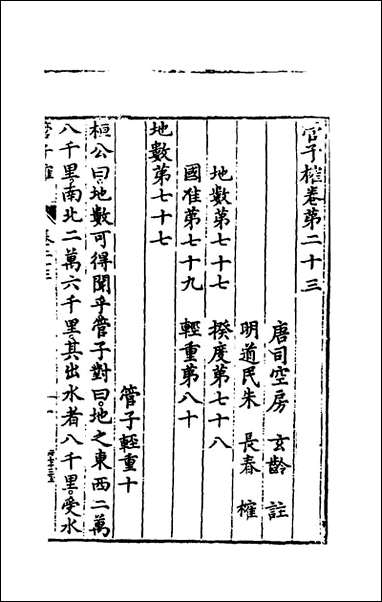 管子榷卷第二十三
唐司空房 玄齡 註
明道民朱 長春 榷
地數第七十七 揆度第七十八
國准第七十九 輕重第八十
地數第七十七
管子輕重十
桓公曰。地數可得聞乎。管子對曰。地之東西二萬
八千里。南北二萬六千里。其出水者八千里。受水